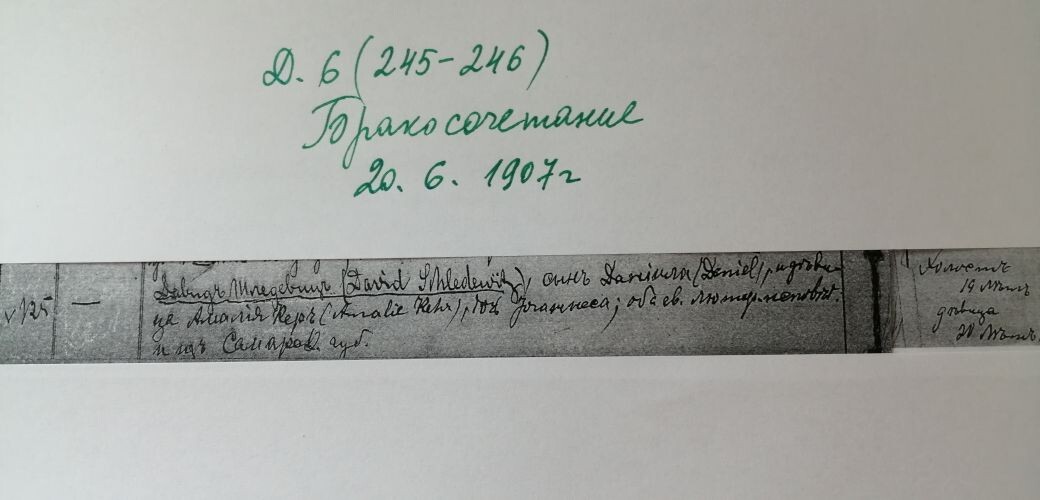 Д. 6 (245-246)
Бракосочетание
20. 6. 1907 г
v 125 —
Давидъ Шледевицъ (David Schledewitz), сынъ Даніила (Daniel), и дѣви-
ца Амалія Керъ (Amalie Kehr), дочь Іоганнеса; оба ев. лютер.
и изъ Самаров. губ.
Холостъ
19 лѣтъ
дѣвица
20 лѣтъ.